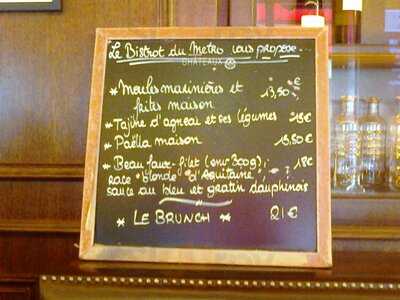 Le Bistrot du Metro vous propose...
CHATEAUX
* Moules marinières et 13,50 €
frites maison
* Tajine d'agneau et ses légumes 15€
* Paëlla maison 15,50€
* Beau faux-filet (env 300g), 18€
race "blonde d'Aquitaine",
sauce au bleu et gratin dauphinois
* LE BRUNCH * 21€